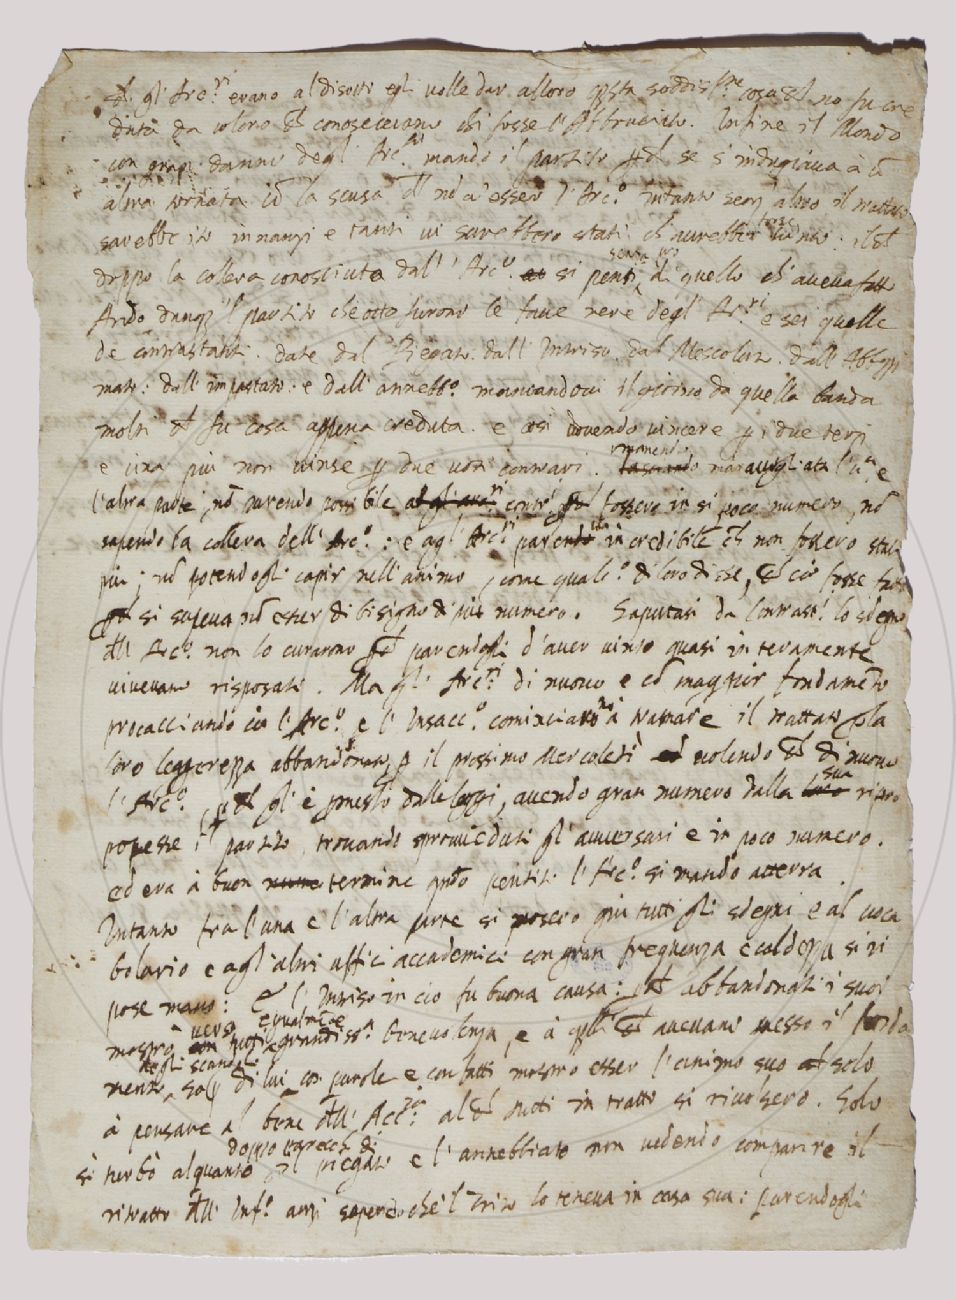 gli Arc.ri erano al disotto egli volle dar alloro questa cosa che no fu cre
duta da coloro che conoscevano chi fosse l'Abbruciato. Infine il Mondo
con gran danno degl' Arc.ri mandò il partito se s'indugiava à
altra tornata la scusa l'Arc.o intanto senz'altro il trattato
sarebbe ito innanzi e tanti vi sarebbero stati ch'avrebber forse vinto.
doppo la collera conosciuta dall'Arc.o si pentì di quello ch'aveva fatto
Andò dunq' il partito che otto furono le fave nere degl'Ar.ri e sei quelle
de contrastanti. date dal dall'Intriso. dal Mescolato. dall'
mato: dall'impastato: e dall'annebb.o mancandoui il giorno da quella banda
molti che fu cosa appena creduta. e così dovendo vincere p i due terzi
e una più non vinse p due voti contrari. rimanendo maravigliata l'una e
l'altra parte, nō parendo possibile contr.i fossero in si poco numero, nō
sapendo la collera dell'Arc.o: e agl'Arc.ri parendo incredibile ch non fossero stati
più; nō potendogli capir nell'animo, come qualc.o di loro disse, che ciò fosse fatto
si sapeva nō esser di bisogno di più numero. Saputasi da Contrast.i lo sdegno
dell'Arc.o non lo curarono parendogli d'aver vinto quasi interamente
vivevano risposati. Ma gl'Arc.ri di nuovo e cō maggior fondamēto
procacciando l'Arc.o e l'Insacc.o cominciarono à tramare il trattato p la
loro leggerezza abbandonaz.o p il prossimo Mercoledì volendo che di nuovo
l'Arc.o, gl'è permesso dalle leggi, avendo gran numero dalla sua ripro
ponesse il partito, trovando sprovveduti gl'avversari e in poco numero.
ed era à buon termine qndo pentito l'Arc.o si mandò atterra.
Intanto fra l'una e l'altra parte si poscro giu tutti gli sdegni e al voca
bolario e agl'altri uffici accademici con gran frequenza e caldezza si ri
pose mano: E l'Intriso in ciò fu buona causa: abbandonati i suoi
mostrò verso tutti egualmēte grandiss.a benevolenza, e à che avevano messo il fonda
mento degli scandoli sop di lui con parole e con fatti mostrò esser l'animo suo solo
à pensare al bene dell'Acc.a al che tutti in tratto si rivolsero. Solo
si turbò alquanto doppo parecch di il piegato e l'annebbiato non vedendo comparire il
ritratto dell'Inf.o anzi sapendo che'l Trito lo teneva in casa sua: parendogli